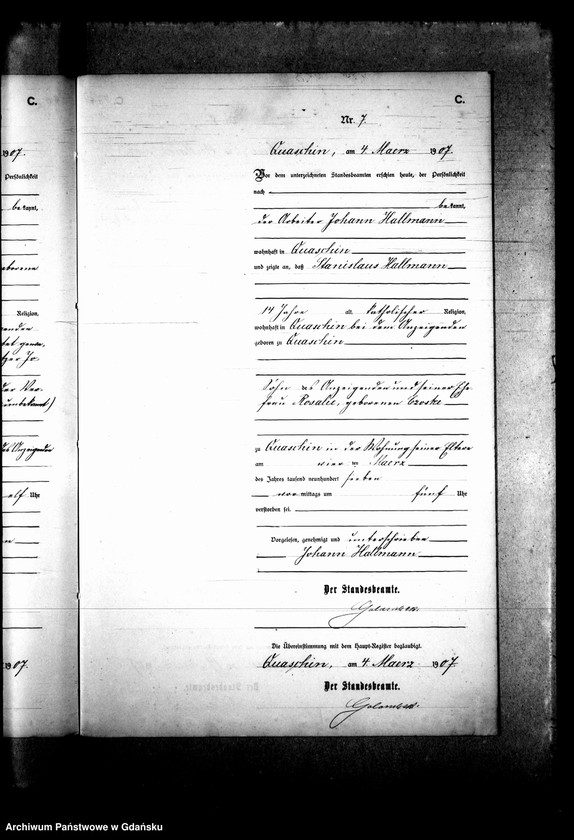 C.
1907.
Persönlichkeit
bekannt,
eborene
Religion,
enden
Jo.
der Ver-
des Anzeigenden
elf Uhr
1907.
C.
Nr. 7.
Quaschin, am 4 Maerz 1907.
Vor dem unterzeichneten Standesbeamten erschien heute, der Persönlichkeit
nach
bekannt,
der Arbeiter Johann Hallmann
wohnhaft in Quaschin
und zeigte an, daß Stanislaus Hallmann
14 Jahre alt, katholischer Religion,
wohnhaft in Quaschin bei dem Anzeigenden
geboren zu Quaschin
Sohn des Anzeigenden und seiner Ehe-
frau Rosalie, geborenen
zu Quaschin in der Wohnung seiner Eltern
am vier ten Maerz
des Jahres tausend neunhundert sieben
vor mittags um fünf Uhr
verstorben sei.
Vorgelesen, genehmigt und unterschrieben
Johann Hallmann
Der Standesbeamte.
Die Übereinstimmung mit dem Haupt-Register beglaubigt.
Quaschin, am 4 Maerz 1907.
Der Standesbeamte.
Archiwum Państwowe w Gdańsku